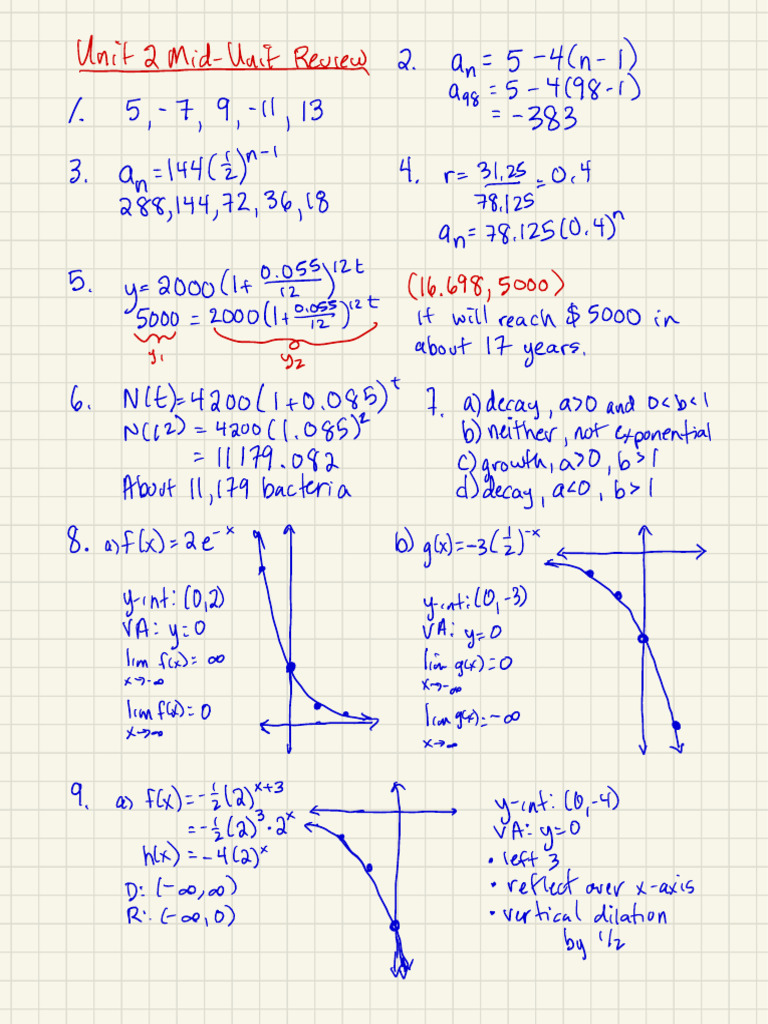 Unit 2 Mid-Unit Review
1. 5, -7, 9, -11, 13
2. aₙ = 5 - 4(n-1)
a₉₈ = 5 - 4(98-1)
= -383
3. aₙ = 144(1/2)ⁿ⁻¹
288, 144, 72, 36, 18
4. r = 31.25/78.125 = 0.4
aₙ = 78.125(0.4)ⁿ
5. y = 2000(1 + 0.055/12)^12t
5000 = 2000(1 + 0.055/12)^12t
y₁ y₂
(16.698, 5000)
It will reach $5000 in
about 17 years.
6. N(t) = 4200(1 + 0.085)^t
N(12) = 4200(1.085)²
= 11179.082
About 11,179 bacteria
7. a) decay, a>0 and 0<b<1
b) neither, not exponential
c) growth, a>0, b>1
d) decay, a<0, b>1
8. a) f(x) = 2e^-x
y-int: (0,2)
VA: y=0
lim f(x) = ∞
x→-∞
lim f(x) = 0
x→∞
b) g(x) = -3(1/2)^-x
y-int: (0,-3)
VA: y=0
lim g(x) = 0
x→-∞
lim g(x) = -∞
x→∞
9. a) f(x) = -1/2(2)^x+3
= -1/2(2)³ · 2^x
h(x) = -4(2)^x
D: (-∞, ∞)
R: (-∞, 0)
y-int: (0,-4)
VA: y=0
• left 3
• reflect over x-axis
• vertical dilation
by 1/2